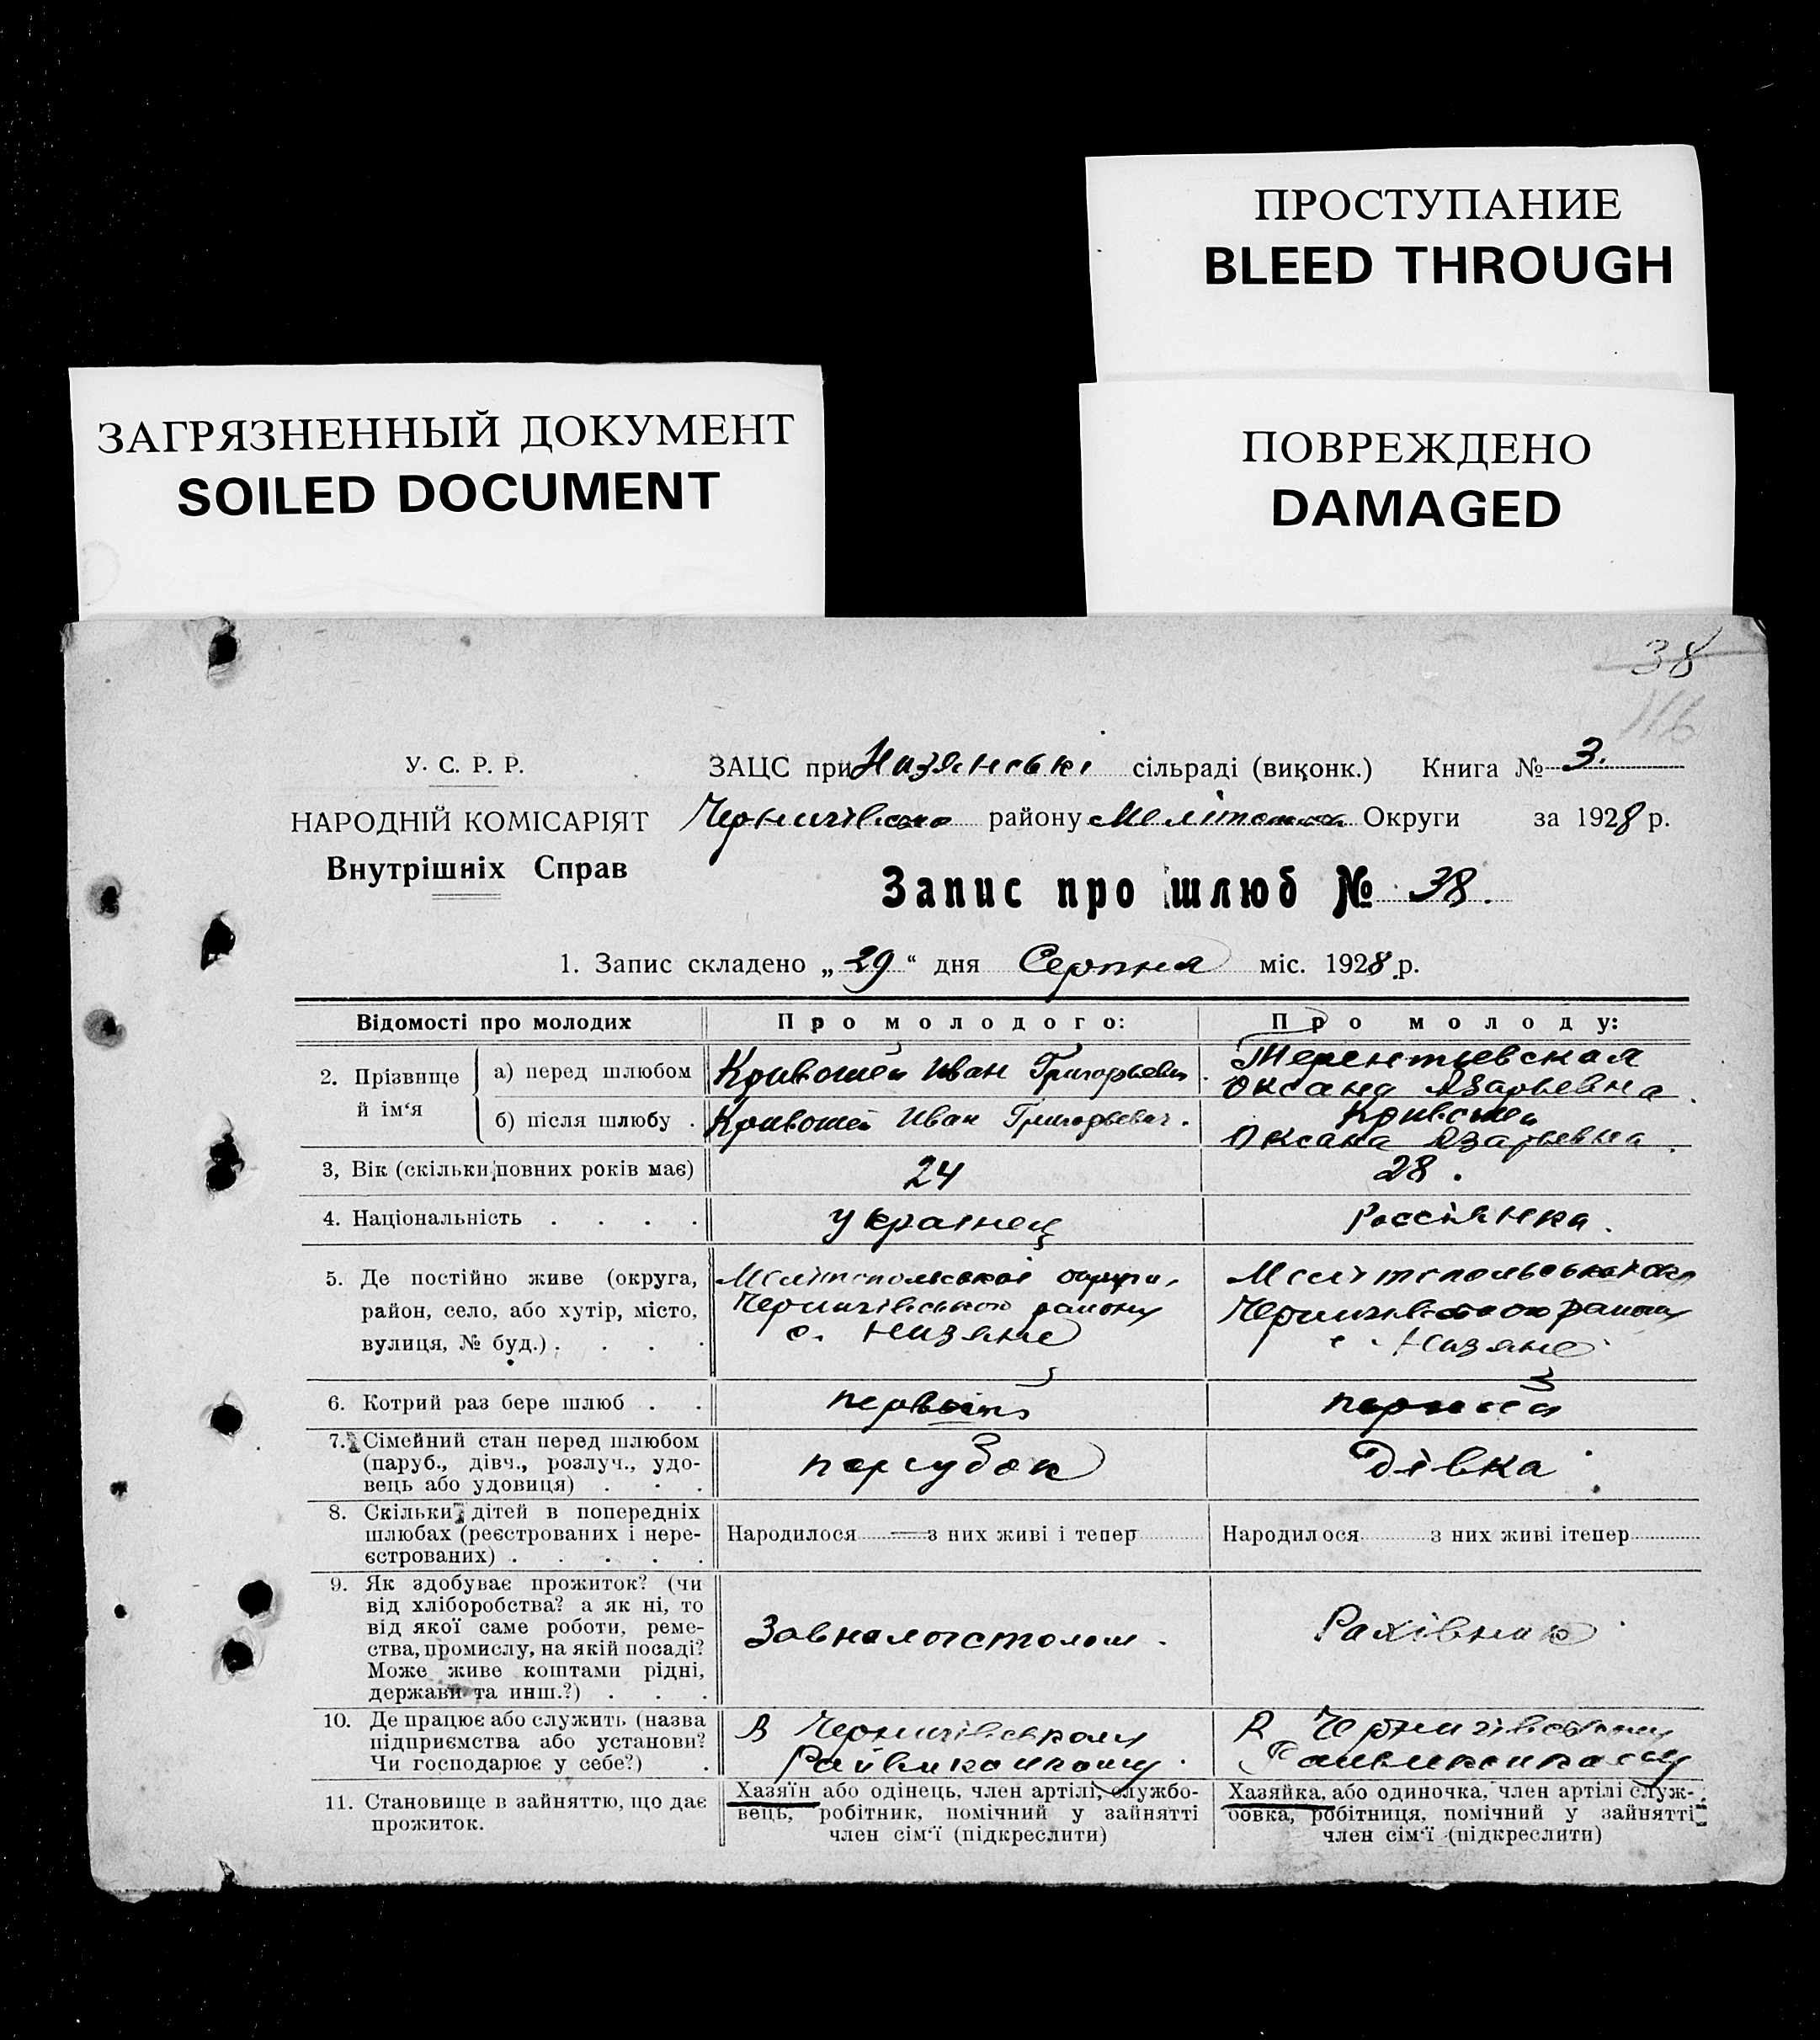 ПРОСТУПАНИЕ
BLEED THROUGH
ЗАГРЯЗНЕННЫЙ ДОКУМЕНТ
SOILED DOCUMENT
ПОВРЕЖДЕНО
DAMAGED
38
116
У. С. Р. Р.
НАРОДНІЙ КОМІСАРІЯТ
Внутрішніх Справ
ЗАЦС при Низянські сільраді (виконк.) Книга № 3.
Чернигівсько району Меліто Округи за 1928 р.
Запис про шлюб № 38.
1. Запис складено „29“ дня Серпня міс. 1928 р.
Відомості про молодих
Про молодого:
Про молоду:
2. Прізвище й ім‘я
а) перед шлюбом
Кривошей Иван Григорьевич.
Терентьевская
Оксана Азарьевна.
б) після шлюбу .
Кривошей Иван Григорьевич.
Кривошей
Оксана Азарьевна.
3, Вік (скільки повних років має)
24
28.
4. Національність . . . .
украінец
Россіянка.
5. Де постійно живе (округа,
район, село, або хутір, місто,
вулиця, № буд.) . . . .
Мелітопольскоі округи,
Чернигівського району
с. Низяне
Мелітопольськоі окр
Чернигівського району
с. Низяне
6. Котрий раз бере шлюб . .
первый
перший
7. Сімейний стан перед шлюбом
(паруб., дівч., розлуч., удо-
вець або удовиця) . . .
парубок
Дівка
8. Скільки дітей в попередніх
шлюбах (реєстрованих і нере-
єстрованих) . . . . .
Народилося — з них живі і тепер
Народилося з них живі ітепер
9. Як здобуває прожиток? (чи
від хліборобства? а як ні, то
від якої саме роботи, реме-
ства, промислу, на якій посаді?
Може живе коштами рідні,
держави та инш.?) . . .
Завналогстолом.
Рахівник
10. Де працює або служить (назва
підприємства або установи?
Чи господарює у себе?) .
В Чернигівському
Райвиконкому.
В Чернигівському
Райвиконкому
11. Становище в зайняттю, що дає
прожиток.
Хазяїн або одінець, член артілі, службо-
вець, робітник, помічний у зайнятті
член сім‘ї (підкреслити)
Хазяйка, або одиночка, член артілі служ-
бовка, робітниця, помічний у зайнятті
член сім‘ї (підкреслити)